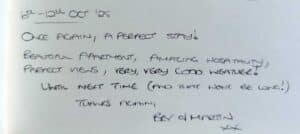 6th - 12th OCT '25
ONCE AGAIN, A PERFECT STAY!
BEAUTIFUL APARTMENT, AMAZING HOSPITALITY,
PERFECT VIEWS, VERY, VERY GOOD WEATHER!
UNTIL NEXT TIME (AND THAT WON'T BE LONG!)
THANKS AGAIN,
BEV & MARTIN
XXX